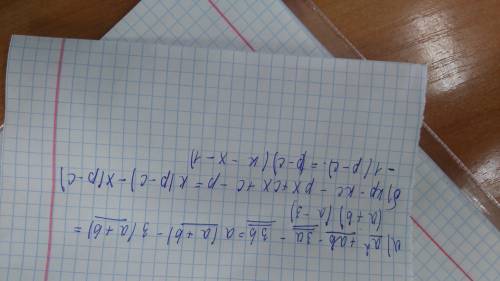 а) a² + ab - 3a - 3b = a(a+b) - 3(a+b) =
(a+b)(a-3)
б) кp - кc - px + cx + c - p = к(p-c) - x(p-c)
- 1(p-c) = (p-c)(к - x - 1)